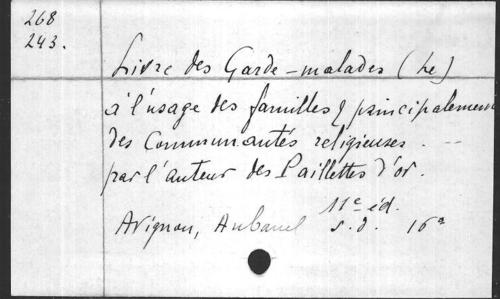 268
243.
Livre des Garde-malades (Le)
à l'usage des familles & principalement
des Communautés religieuses. ..
par l'auteur des Paillettes d'or.
11e éd.
Avignon, Aubanel s.d. 16°